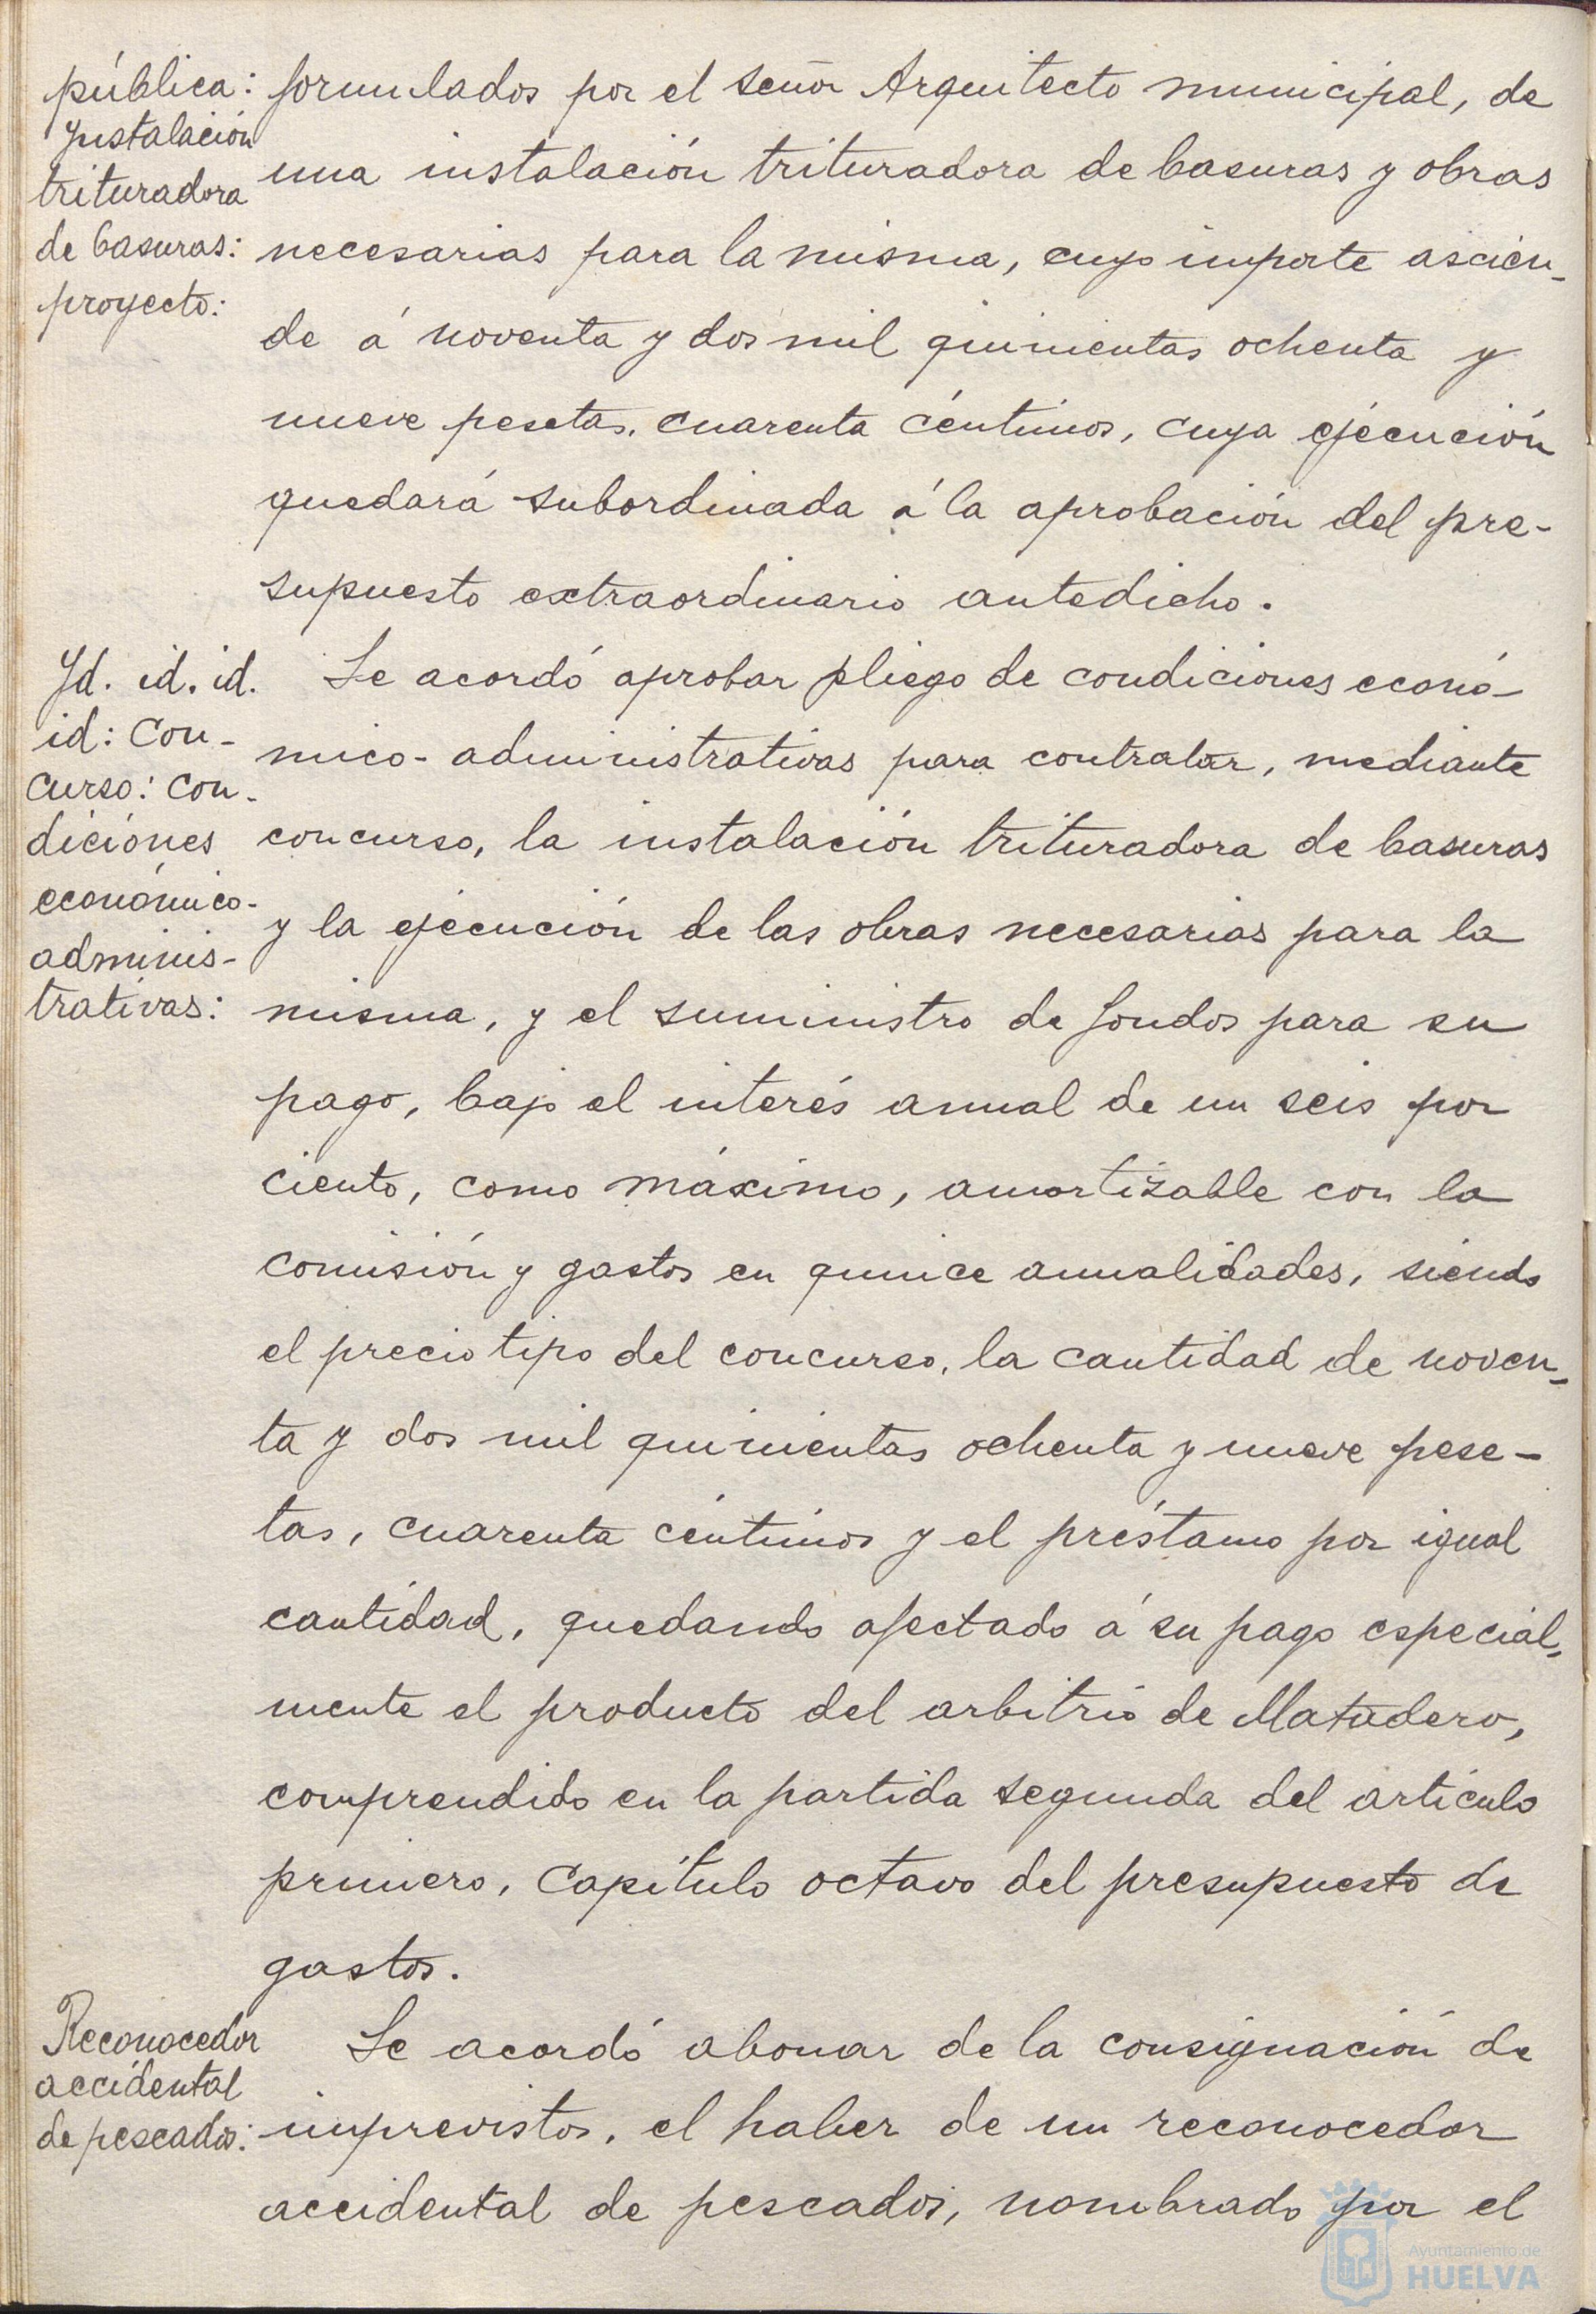 pública:
Ynstalación
trituradora
de basuras:
proyecto:
formulados por el señor Arquitecto municipal, de
una instalación trituradora de basuras y obras
necesarias para la misma, cuyo importe ascien-
de á noventa y dos mil quinientas ochenta y
nueve pesetas, cuarenta céntimos, cuya ejecución
quedará subordinada á la aprobación del pre-
supuesto extraordinario antedicho.
Yd. id. id.
id: Con-
curso: Con-
diciones
económico-
adminis-
trativas:
Se acordó aprobar pliego de condiciones econó-
mico-administrativas para contratar, mediante
concurso, la instalación trituradora de basuras
y la ejecución de las obras necesarias para la
misma, y el suministro de fondos para su
pago, bajo el interés anual de un seis por
ciento, como máximo, amortizable con la
comisión y gastos en quince anualidades, siendo
el precio tipo del concurso, la cantidad de noven-
ta y dos mil quinientas ochenta y nueve pese-
tas, cuarenta céntimos y el préstamo por igual
cantidad, quedando afectado á su pago especial-
mente el producto del arbitrio de Matadero,
comprendido en la partida segunda del artículo
primero, Capítulo octavo del presupuesto de
gastos.
Reconocedor
accidental
de pescados:
Se acordó abonar de la consignación de
imprevistos, el haber de un reconocedor
accidental de pescados, nombrado por el
Ayuntamiento de
HUELVA